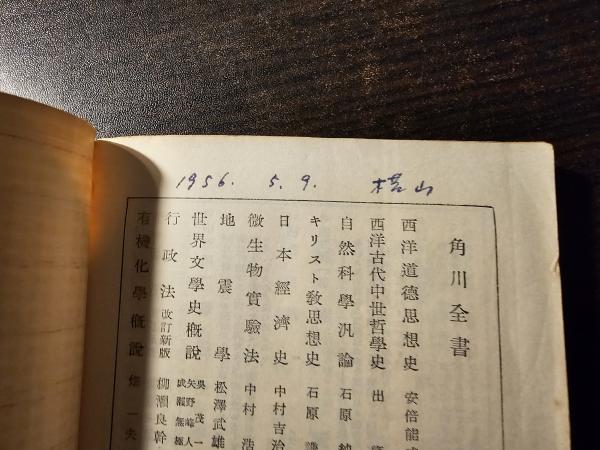 1956. 5. 9.
角川全書
西洋道德思想史 安倍能成
西洋古代中世哲學史 出
自然科學汎論 石原 純
キリスト教思想史 石原 謙
日本經濟史 中村吉治
微生物實驗法 中村 浩
地震學 松澤武雄
世界文學史概説 吳 茂一 矢野峰人
行政法 改訂新版 柳瀨良幹
有機化學概説 畑 一夫